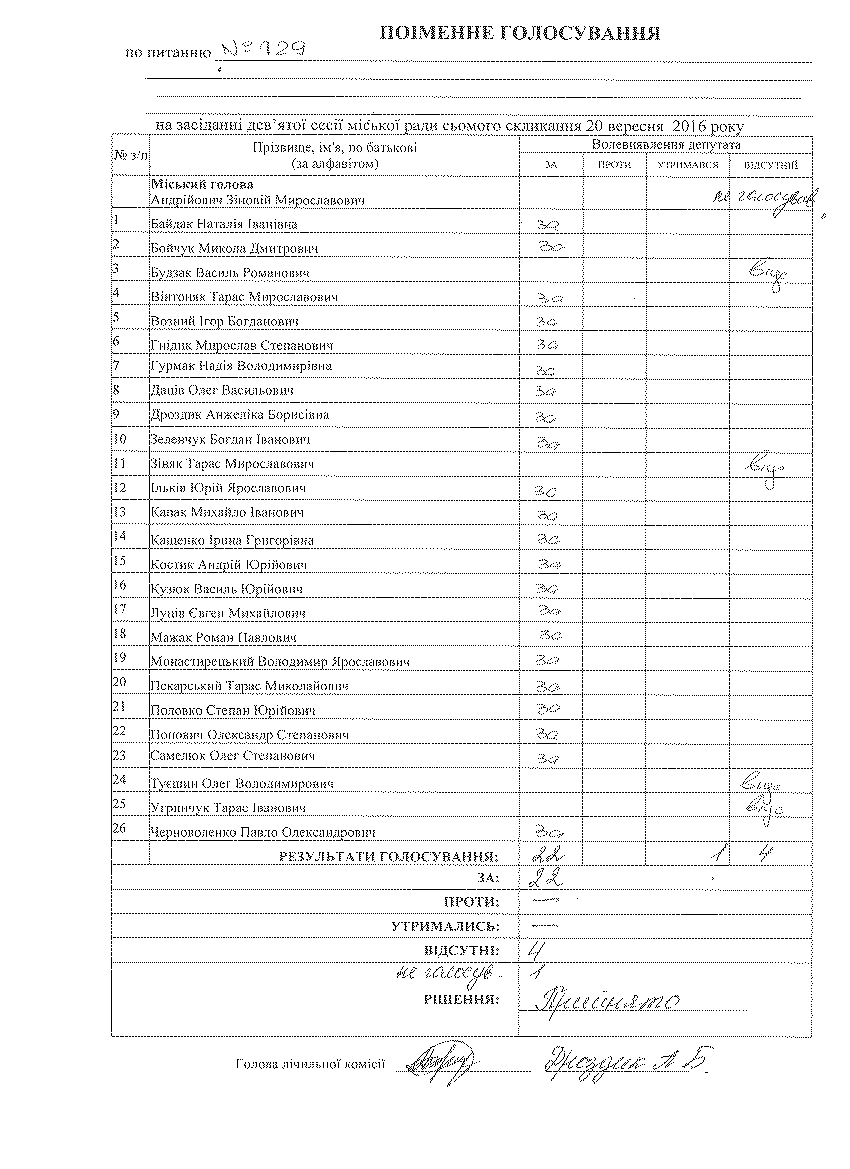 ПОІМЕННЕ ГОЛОСУВАННЯ
по питанню №129
на засіданні дев'ятої сесії міської ради сьомого скликання 20 вересня 2016 року
№ з/п Прізвище, ім'я, по батькові (за алфавітом) Волевиявлення депутата
ЗА ПРОТИ УТРИМАВСЯ ВІДСУТНІЙ
Міський голова
Андрійович Зіновій Мирославович не голосував
1 Байдак Наталія Іванівна За
2 Бойчук Микола Дмитрович За
3 Будзак Василь Романович відс
4 Вінтоняк Тарас Мирославович За
5 Возний Ігор Богданович За
6 Гнідик Мирослав Степанович За
7 Гурмак Надія Володимирівна За
8 Даців Олег Васильович За
9 Дроздик Анжеліка Борисівна За
10 Зеленчук Богдан Іванович За
11 Зіняк Тарас Мирославович відс
12 Ільків Юрій Ярославович За
13 Капак Михайло Іванович За
14 Кащенко Ірина Григорівна За
15 Костик Андрій Юрійович За
16 Кузюк Василь Юрійович За
17 Луців Євген Михайлович За
18 Мажак Роман Павлович За
19 Монастирецький Володимир Ярославович За
20 Пекарський Тарас Миколайович За
21 Половко Степан Юрійович За
22 Попович Олександр Степанович За
23 Самелюк Олег Степанович За
24 Туєшин Олег Володимирович відс
25 Угринчук Тарас Іванович відс
26 Черноволенко Павло Олександрович За
РЕЗУЛЬТАТИ ГОЛОСУВАННЯ: 22 1 4
ЗА: 22
ПРОТИ: —
УТРИМАЛИСЬ: —
ВІДСУТНІ: 4
не голосув. 1
РІШЕННЯ: Прийнято
Голова лічильної комісії Дроздик А Б.